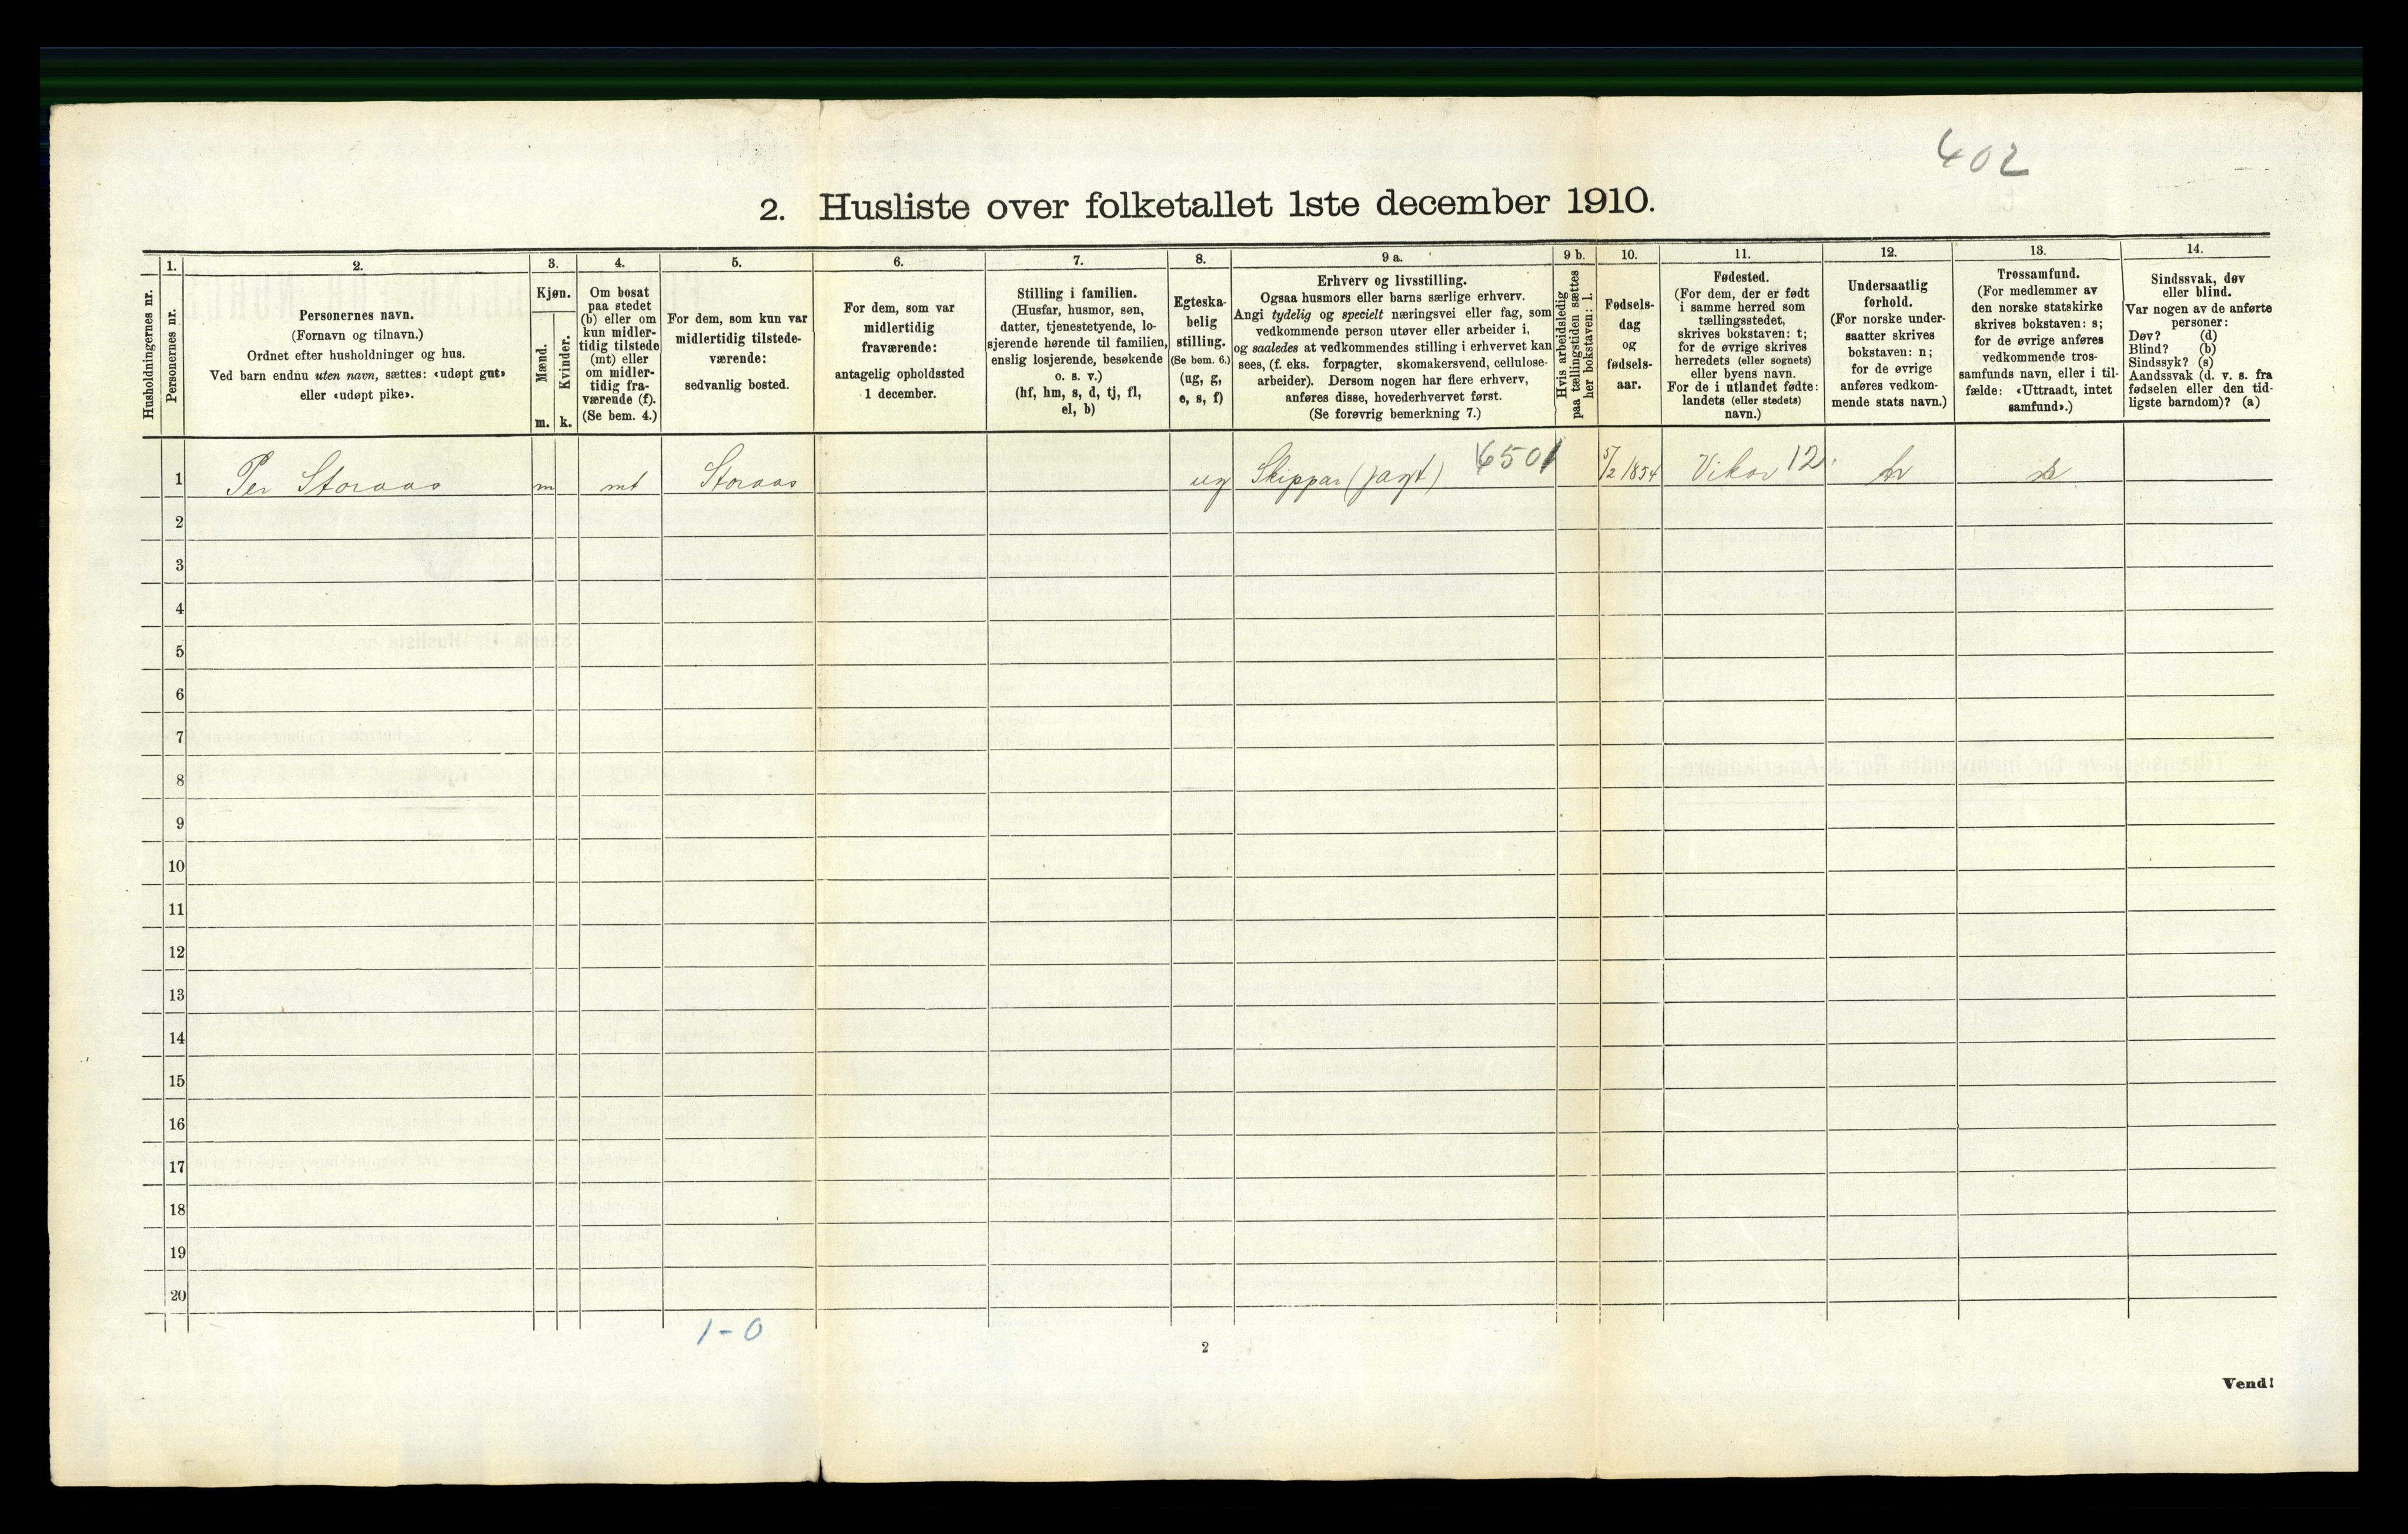 402
2. Husliste over folketallet 1ste december 1910.
Husholdningernes nr.
1.
Personernes nr.
2.
Personernes navn.
(Fornavn og tilnavn.)
Ordnet efter husholdninger og hus.
Ved barn endnu uten navn, sættes: «udøpt gut»
eller «udøpt pike».
3.
Kjøn.
Mænd.
Kvinder.
m. k.
4.
Om bosat
paa stedet
(b) eller om
kun midler-
tidig tilstede
(mt) eller
om midler-
tidig fra-
værende (f).
(Se bem. 4.)
5.
For dem, som kun var
midlertidig tilstede-
værende:
sedvanlig bosted.
6.
For dem, som var
midlertidig
fraværende:
antagelig opholdssted
1 december.
7.
Stilling i familien.
(Husfar, husmor, søn,
datter, tjenestetyende, lo-
sjerende hørende til familien,
enslig losjerende, besøkende
o. s. v.)
(hf, hm, s, d, tj, fl,
el, b)
8.
Egteska-
belig
stilling.
(Se bem. 6.)
(ug, g,
e, s, f)
9 a.
Erhverv og livsstilling.
Ogsaa husmors eller barns særlige erhverv.
Angi tydelig og specielt næringsvei eller fag, som
vedkommende person utøver eller arbeider i,
og saaledes at vedkommendes stilling i erhvervet kan
sees, (f. eks. forpagter, skomakersvend, cellulose-
arbeider). Dersom nogen har flere erhverv,
anføres disse, hovederhvervet først.
(Se forøvrig bemerkning 7.)
9 b.
Hvis arbeidsledig
paa tællingstiden sættes
her bokstaven: l.
10.
Fødsels-
dag
og
fødsels-
aar.
11.
Fødested.
(For dem, der er født
i samme herred som
tællingsstedet,
skrives bokstaven: t;
for de øvrige skrives
herredets (eller sognets)
eller byens navn.
For de i utlandet fødte:
landets (eller stedets)
navn.)
12.
Undersaatlig
forhold.
(For norske under-
saatter skrives
bokstaven: n;
for de øvrige
anføres vedkom-
mende stats navn.)
13.
Trossamfund.
(For medlemmer av
den norske statskirke
skrives bokstaven: s;
for de øvrige anføres
vedkommende tros-
samfunds navn, eller i til-
fælde: «Uttraadt, intet
samfund».)
14.
Sindssvak, døv
eller blind.
Var nogen av de anførte
personer:
Døv? (d)
Blind? (b)
Sindssyk? (s)
Aandssvak (d. v. s. fra
fødselen eller den tid-
ligste barndom)? (a)
1 Per Storaas m mt Storaas ug Skippar (jagt) 6501 5/2 1854 Vikør 12 n s
2
3
4
5
6
7
8
9
10
11
12
13
14
15
16
17
18
19
20
1-0
2
Vend!